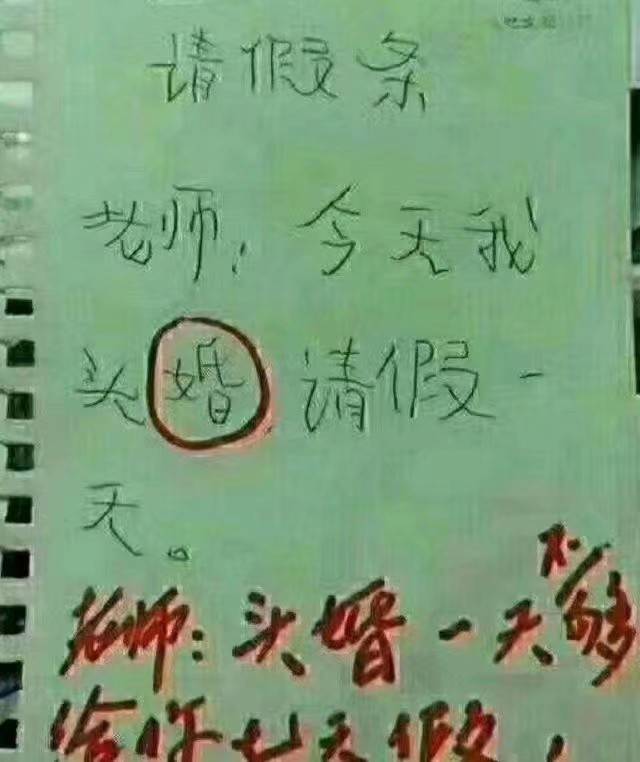 请假条
老师，今天我
头婚请假一
天。
老师：头婚一天不够
给你七天假，